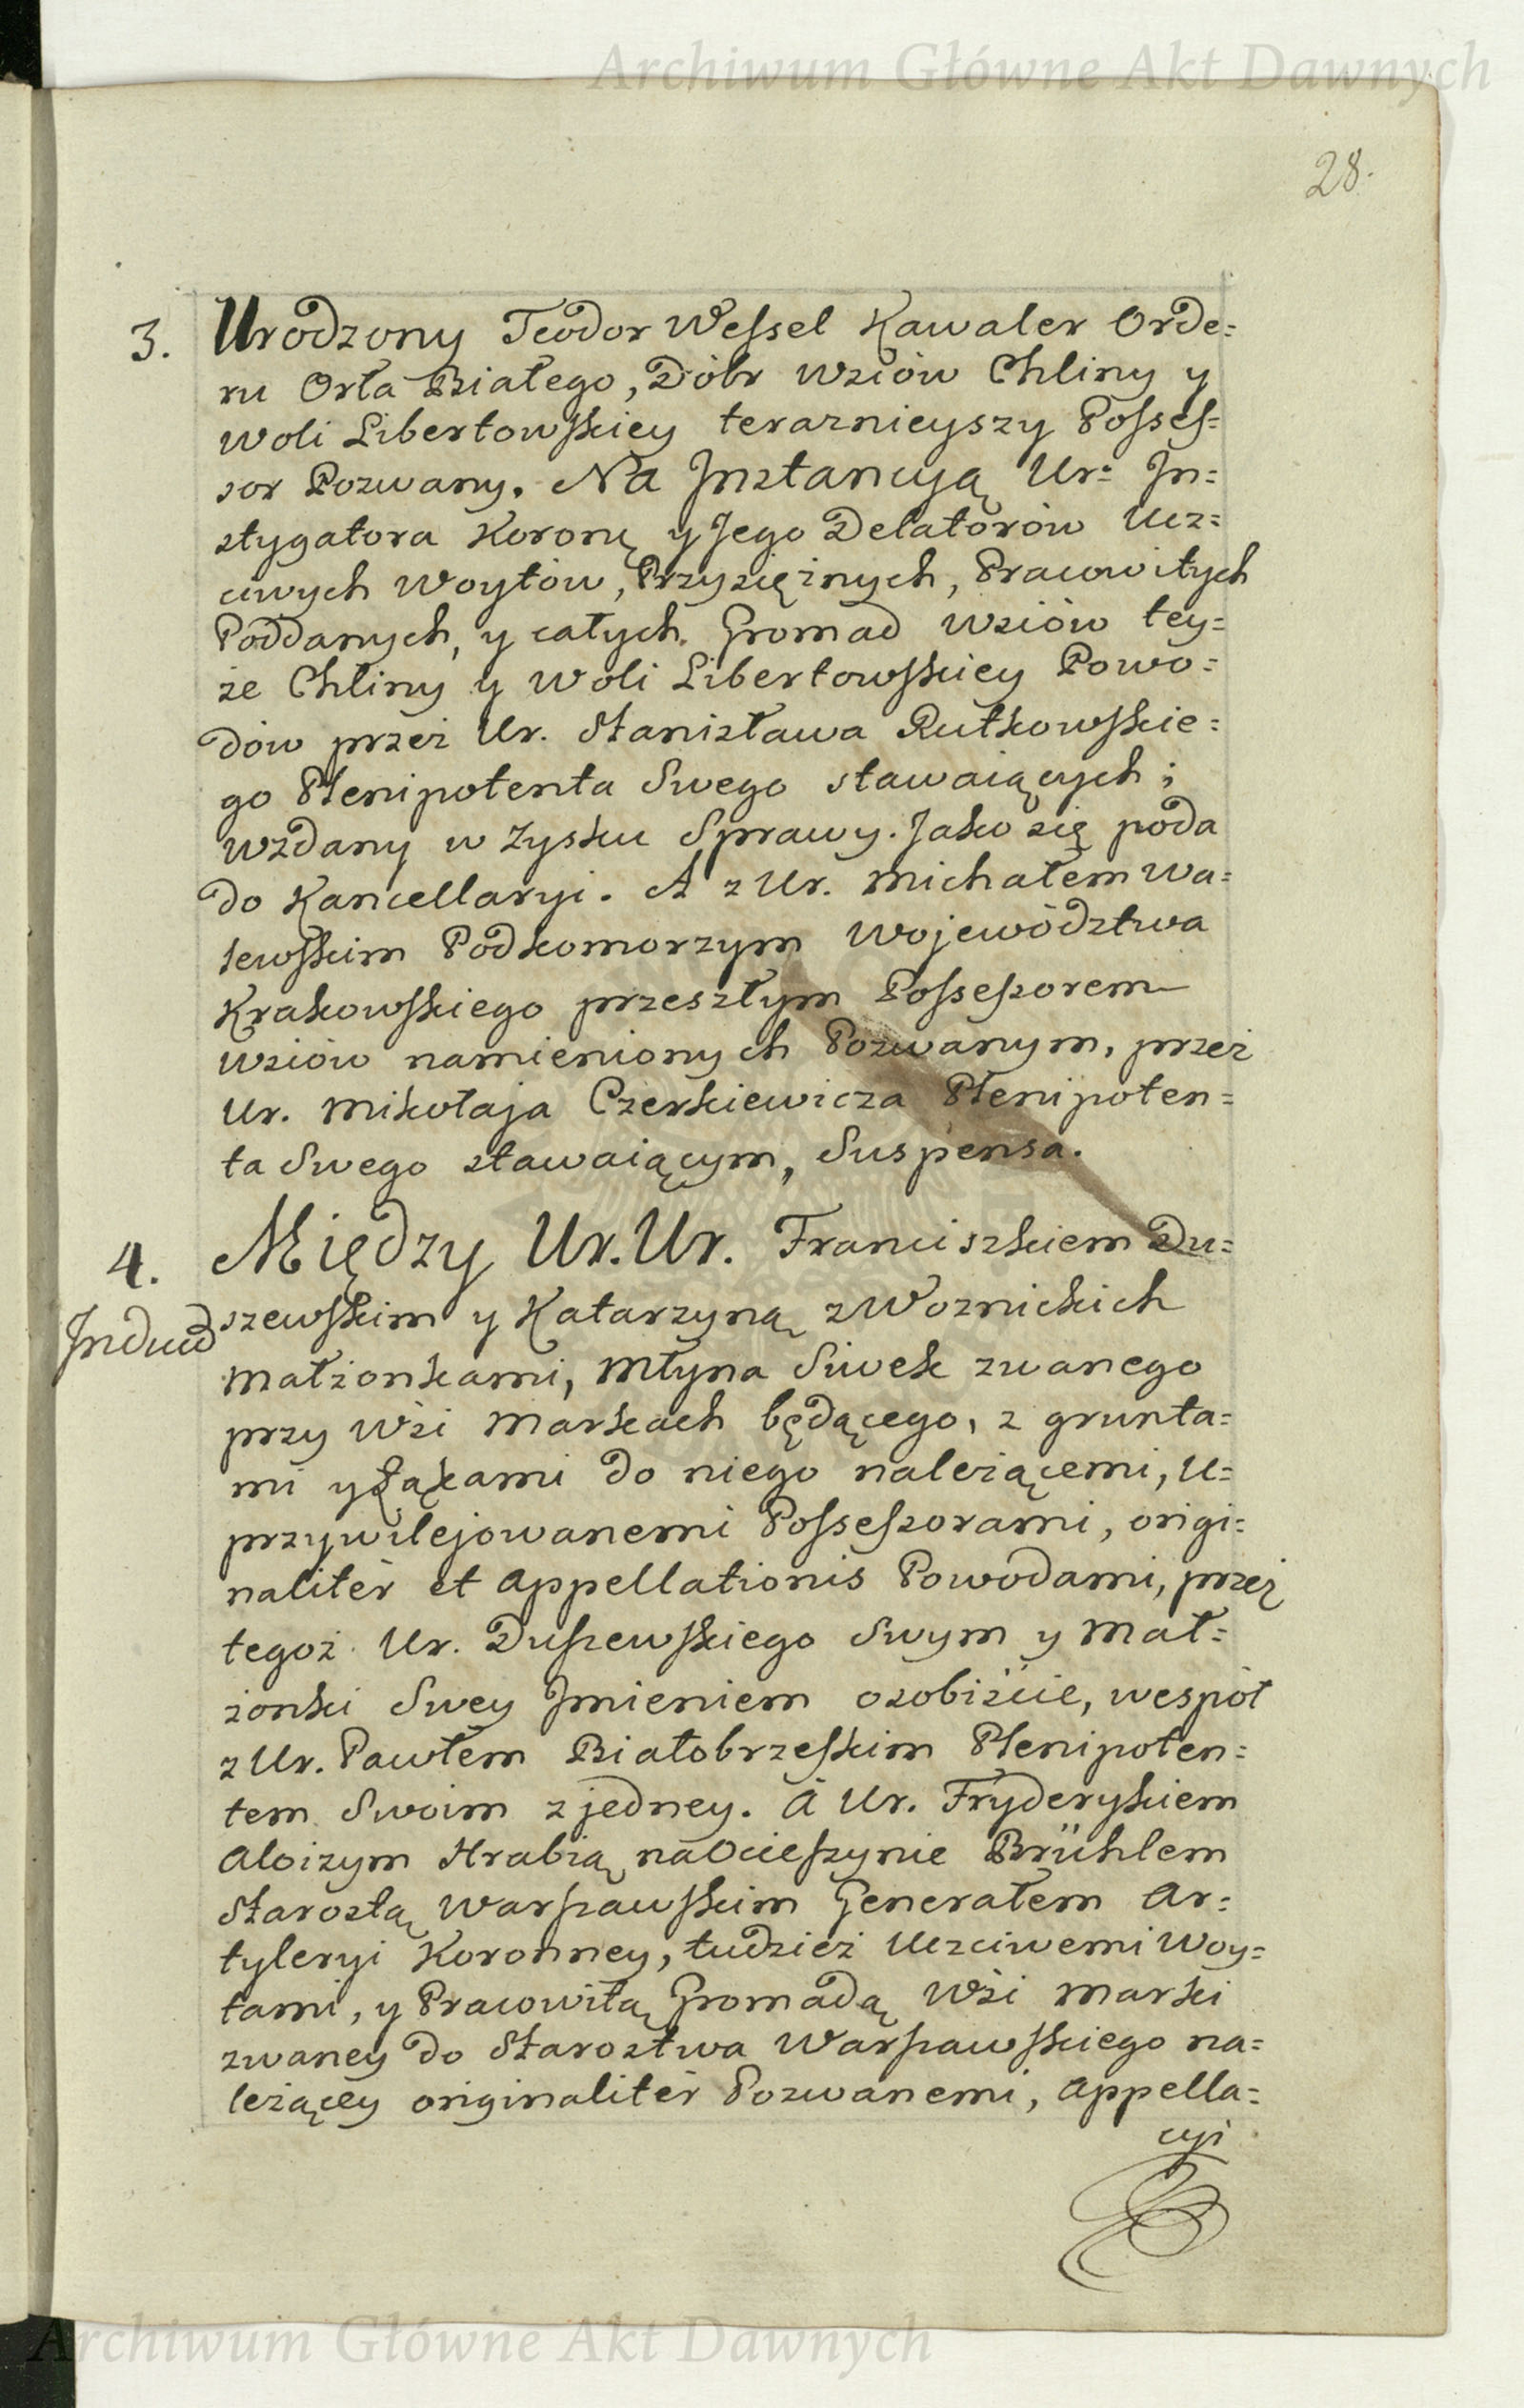 Archiwum Główne Akt Dawnych
28.
3. Urodzony Teodor Wessel Kawaler Orde=
ru Orła Białego, Dóbr Wsiów Chliny y
Woli Libertowskiey teraznieyszy Posses=
sor Pozwany. Na Instancyą Ur: In=
stygatora Koronę y Jego Delatorów Ucz=
ciwych Woytów, Przysięznych, Pracowitych
Poddanych, y całych Gromad Wsiów tey=
że Chliny y Woli Libertowskiey Powo=
dów przez Ur. Stanisława Rutkowskie=
go Plenipotenta Swego stawaiących;
wzdany w Zysku Sprawy. Jako się poda
do Kancellaryi. A z Ur. Michałem Wa=
lewskim Podkomorzym Województwa
Krakowskiego przeszłym Possessorem
Wsiów namienionych Pozwanym, przez
Ur. Mikołaja Czerkiewicza Plenipoten=
ta Swego stawaiącym, Suspensa.
4. Między Ur. Ur. Franciszkiem Du=
Indud szewskim y Katarzyną z Woznickich
Małżonkami, Młyna Siwek zwanego
przy Wsi Markach będącego, z grunta=
mi y Łąkami do niego należącemi, U=
przywilejowanemi Possessorami, origi=
naliter et Appellationis Powodami, przez
tegoż Ur. Duszewskiego Swym y Mał=
żonki Swey Imieniem osobiście, wespół
z Ur. Pawłem Białobrzeskim Plenipoten=
tem Swoim z jedney. A Ur. Fryderykiem
Aloizym Hrabią na Ocieszynie Brühlem
Starostą Warszawskim Generałem Ar=
tyleryi Koronney, tudzież Uczciwemi Woy=
tami, y Pracowitą Gromadą Wsi Marki
zwaney do Starostwa Warszawskiego na=
leżącey originaliter Pozwanemi, Appella=
cyi
Archiwum Główne Akt Dawnych